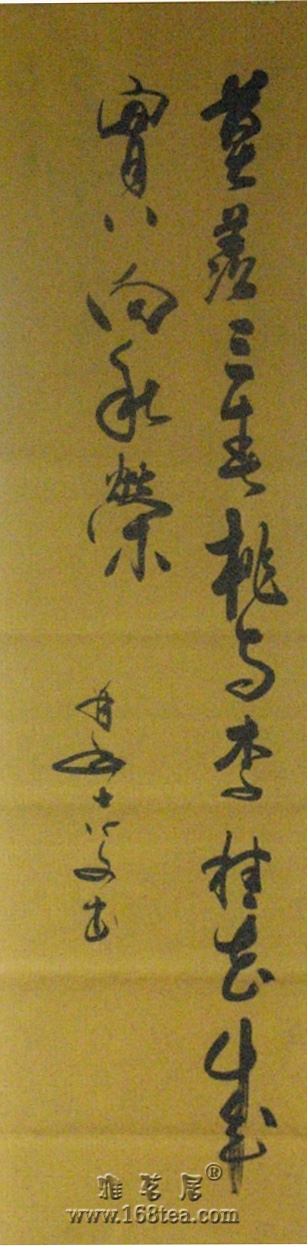 莫羨三春桃与李桂花成
實向秋榮
雅茗居®
www.168tea.com